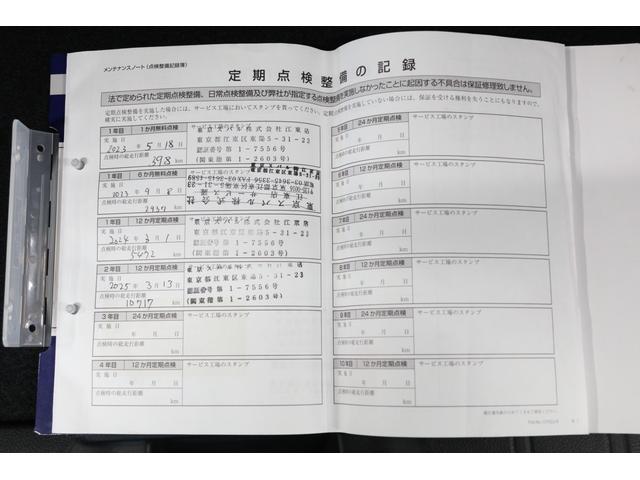 メンテナンスノート(点検整備記録簿)
定期点検整備の記録
法で定められた定期点検整備、日常点検整備及び弊社が指定する点検整備を実施しなかったことに起因する不具合は保証修理致しません。
定期点検整備を実施した場合には、サービス工場においてスタンプを貰ってください。
確実に実施してください。
定期点検整備を実施していない場合には、保証を受ける権利を失うことにもなりますので、
1年目 1か月無料点検
実施日
2023年5月18日
点検時の総走行距離
398 km
東京スバル株式会社江東店
東京都江東区東陽5-31-23
認証番号第1-7556号
(関東指第1-2603号)
1年目 6か月無料点検
実施日
2023年9月8日
点検時の総走行距離
2937 km
1年目 12か月定期点検
サービス工場のスタンプ
実施日
2024年3月1日
点検時の総走行距離
5472 km
東京都江東区東陽5-31-23
認証番号第1-7556号
(関東指第1-2603号)
2年目 12か月定期点検
実施日
2025年3月13日
点検時の総走行距離
10717 km
東京都江東区東陽5-31-23
認証番号第1-7556号
(関東指第1-2603号)
3年目 24か月定期点検
サービス工場のスタンプ
実施日
年 月 日
点検時の総走行距離
km
4年目 12か月定期点検
サービス工場のスタンプ
実施日
年 月 日
点検時の総走行距離
km
24か月定期点検
サービス工場のスタンプ
実施日
年 月 日
点検時の総走行距離
km
12か月定期点検
サービス工場のスタンプ
実施日
年 月 日
点検時の総走行距離
km
7年目 24か月定期点検
サービス工場のスタンプ
実施日
年 月 日
点検時の総走行距離
km
8年目 12か月定期点検
サービス工場のスタンプ
実施日
年 月 日
点検時の総走行距離
km
9年目 24か月定期点検
サービス工場のスタンプ
実施日
年 月 日
点検時の総走行距離
km
10年目 12か月定期点検
サービス工場のスタンプ
実施日
年 月 日
点検時の総走行距離
km